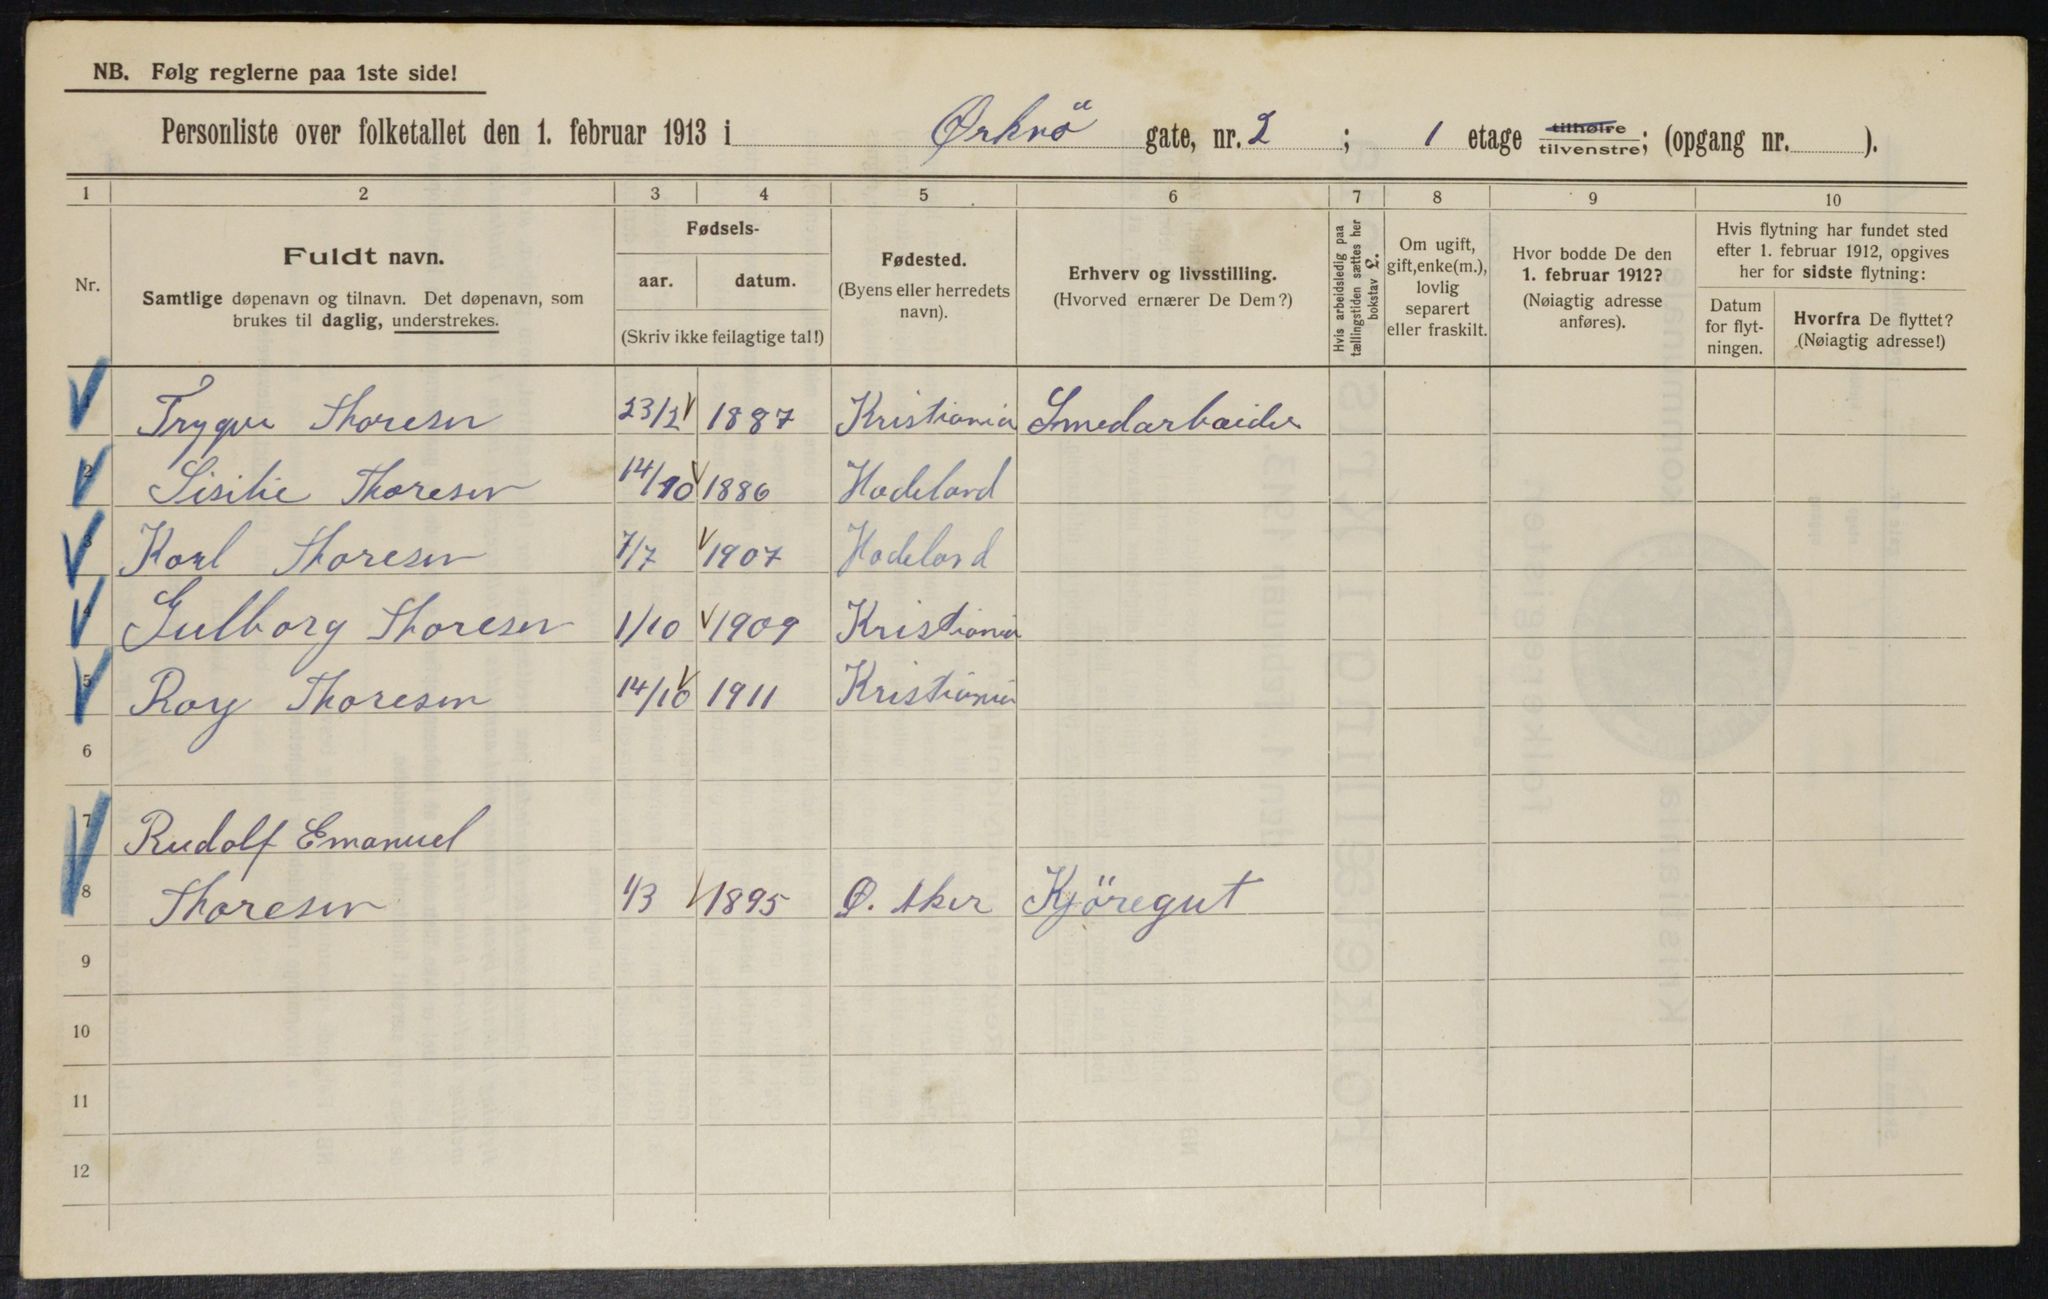 NB. Følg reglerne paa 1ste side!
Personliste over folketallet den 1. februar 1913 i Örknö gate, nr. 2 ; 1 etage tilhøire tilvenstre; (opgang nr. ).
1 2 3 4 5 6 7 8 9 10
Nr.
Fuldt navn.
Samtlige døpenavn og tilnavn. Det døpenavn, som
brukes til daglig, understrekes.
Fødsels-
aar. datum.
(Skriv ikke feilagtige tal!)
Fødested.
(Byens eller herredets
navn).
Erhverv og livsstilling.
(Hvorved ernærer De Dem?)
Hvis arbeidsledig paa
tællingstiden sættes her
bokstav L.
Om ugift,
gift, enke(m.),
lovlig
separert
eller fraskilt.
Hvor bodde De den
1. februar 1912?
(Nøiagtig adresse
anføres).
Hvis flytning har fundet sted
efter 1. februar 1912, opgives
her for sidste flytning:
Datum
for flyt-
ningen.
Hvorfra De flyttet?
(Nøiagtig adresse!)
Trygve Thoresen 23/2 1887 Kristiania Smedarbaider
2 Sisilie Thoresen 14/10 1886 Hadeland
3 Karl Thoresen 7/7 1907 Hadeland
4 Gulborg Thoresen 1/10 1909 Kristiania
5 Roy Thoresen 14/10 1911 Kristiania
6
7 Rudolf Emanuel
8 Thoresen 1/3 1895 Ø. Aker Kjöregut
9
10
11
12